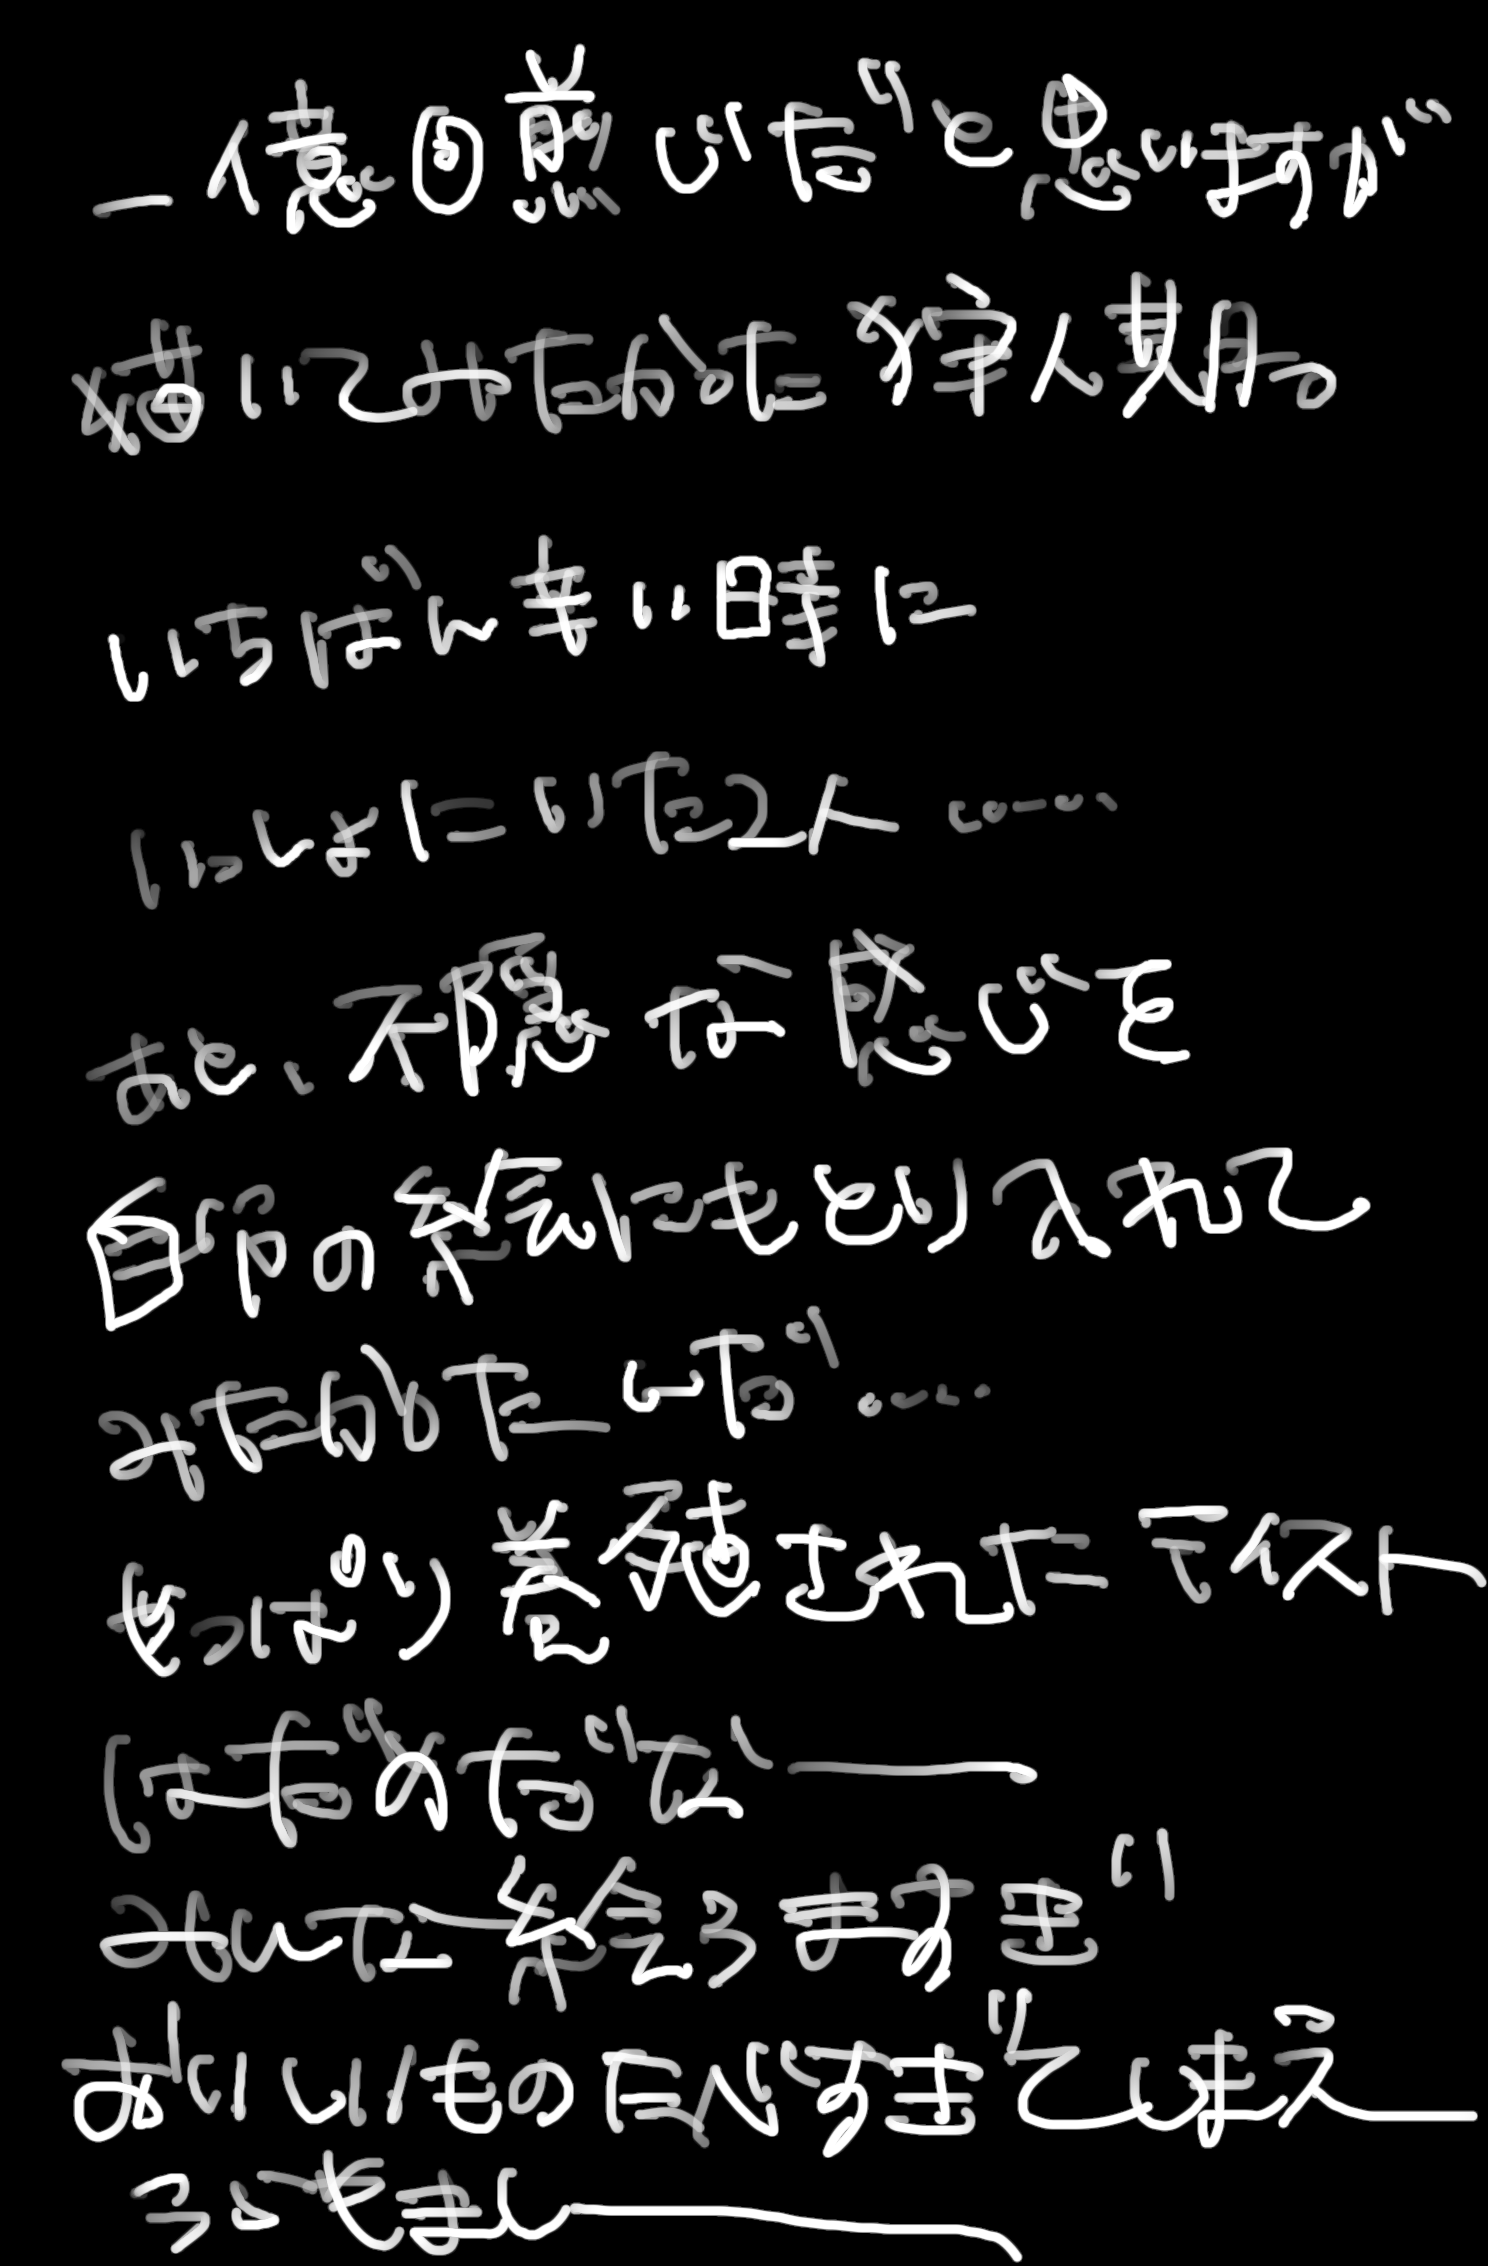 一億回煎じだと思いますが
描いてみたかった狩人期。
いちばん辛い時に
いっしょにいた2人……
あと、不穏な感じを
自分の絵にもとり入れて
みたかったんだ……
やっぱり養殖されたテイスト
はだめだな――
みんな絵うますぎ
おいしいものたべすぎてしまえ――
うらやまし――